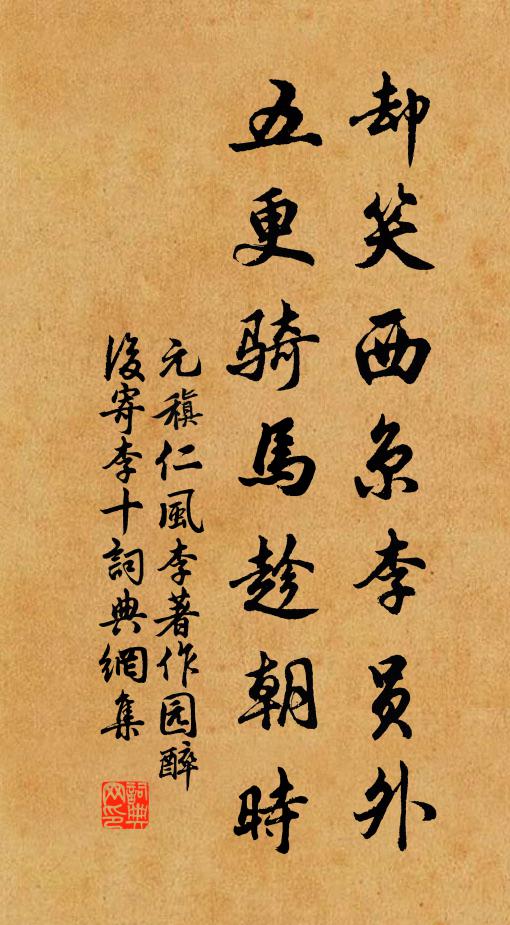 却笑西京李员外
五更騎馬趁朝時
元稹仁風李著作园醉
後寄李十詞典網集
詞典网印